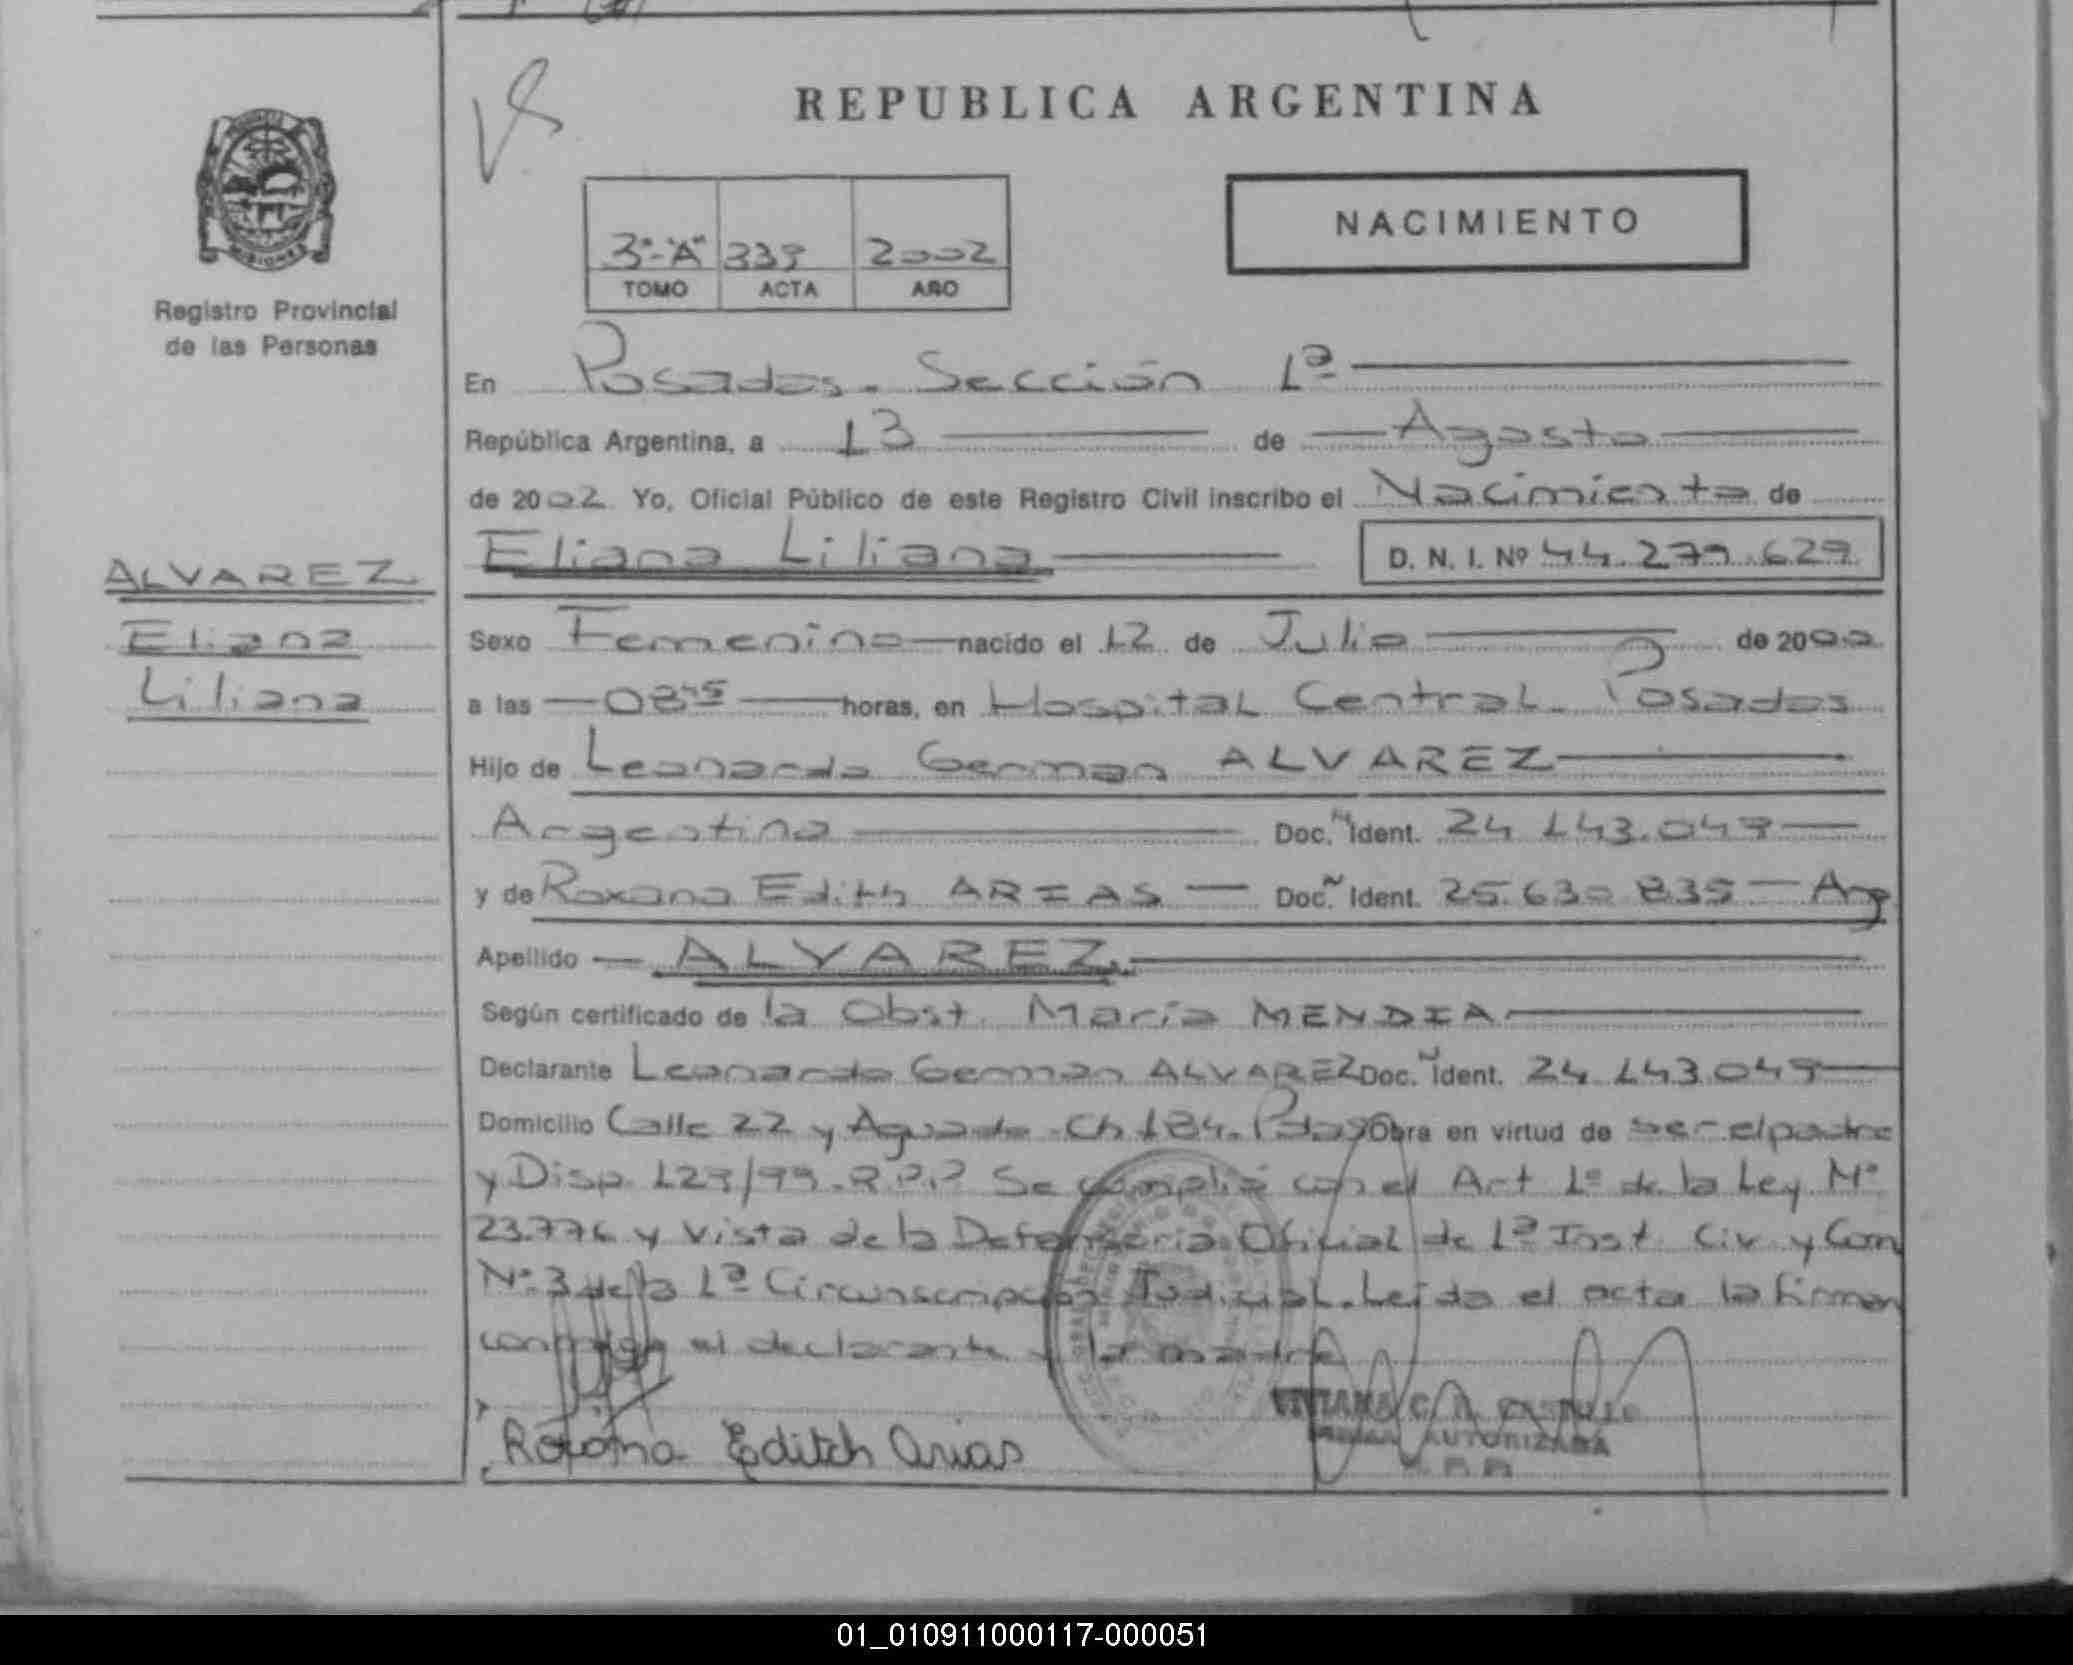 REPUBLICA ARGENTINA
NACIMIENTO
3º-"A" 339 2002
TOMO ACTA AÑO
MISIONES
Registro Provincial
de las Personas
ALVAREZ
Eliana
Liliana
En Posadas. Sección 1ª
República Argentina, a 13 de Agosto
de 2002 Yo, Oficial Público de este Registro Civil inscribo el Nacimiento de
Eliana Liliana D. N. I. Nº 44.279.629
Sexo Femenino nacido el 12 de Julio de 2002
a las 08⁴⁵ horas, en Hospital Central. Posadas
Hijo de Leonardo German ALVAREZ
Argentino Doc. Ident. 24.143.049
y de Roxana Edith ARIAS Doc. Ident. 25.630.835 Arg
Apellido ALVAREZ
Según certificado de la Obst. María MENDIA
Declarante Leonardo German ALVAREZ Doc. Ident. 24.143.049
Domicilio Calle 22 y Aguado Ch 184. Pdas Obra en virtud de ser el padre
y Disp. 129/99. R.P.P Se cumplió con el Art 1º de la Ley Nº
23.776 y Vista de la Defensoría Oficial de 1ª Inst. Civ y Com
Nº 3 de la 1ª Circunscripción Judicial. Leída el acta la firman
conmigo el declarante y la madre
Roxana Editch Arias
AUTORIZADA
01_010911000117-000051